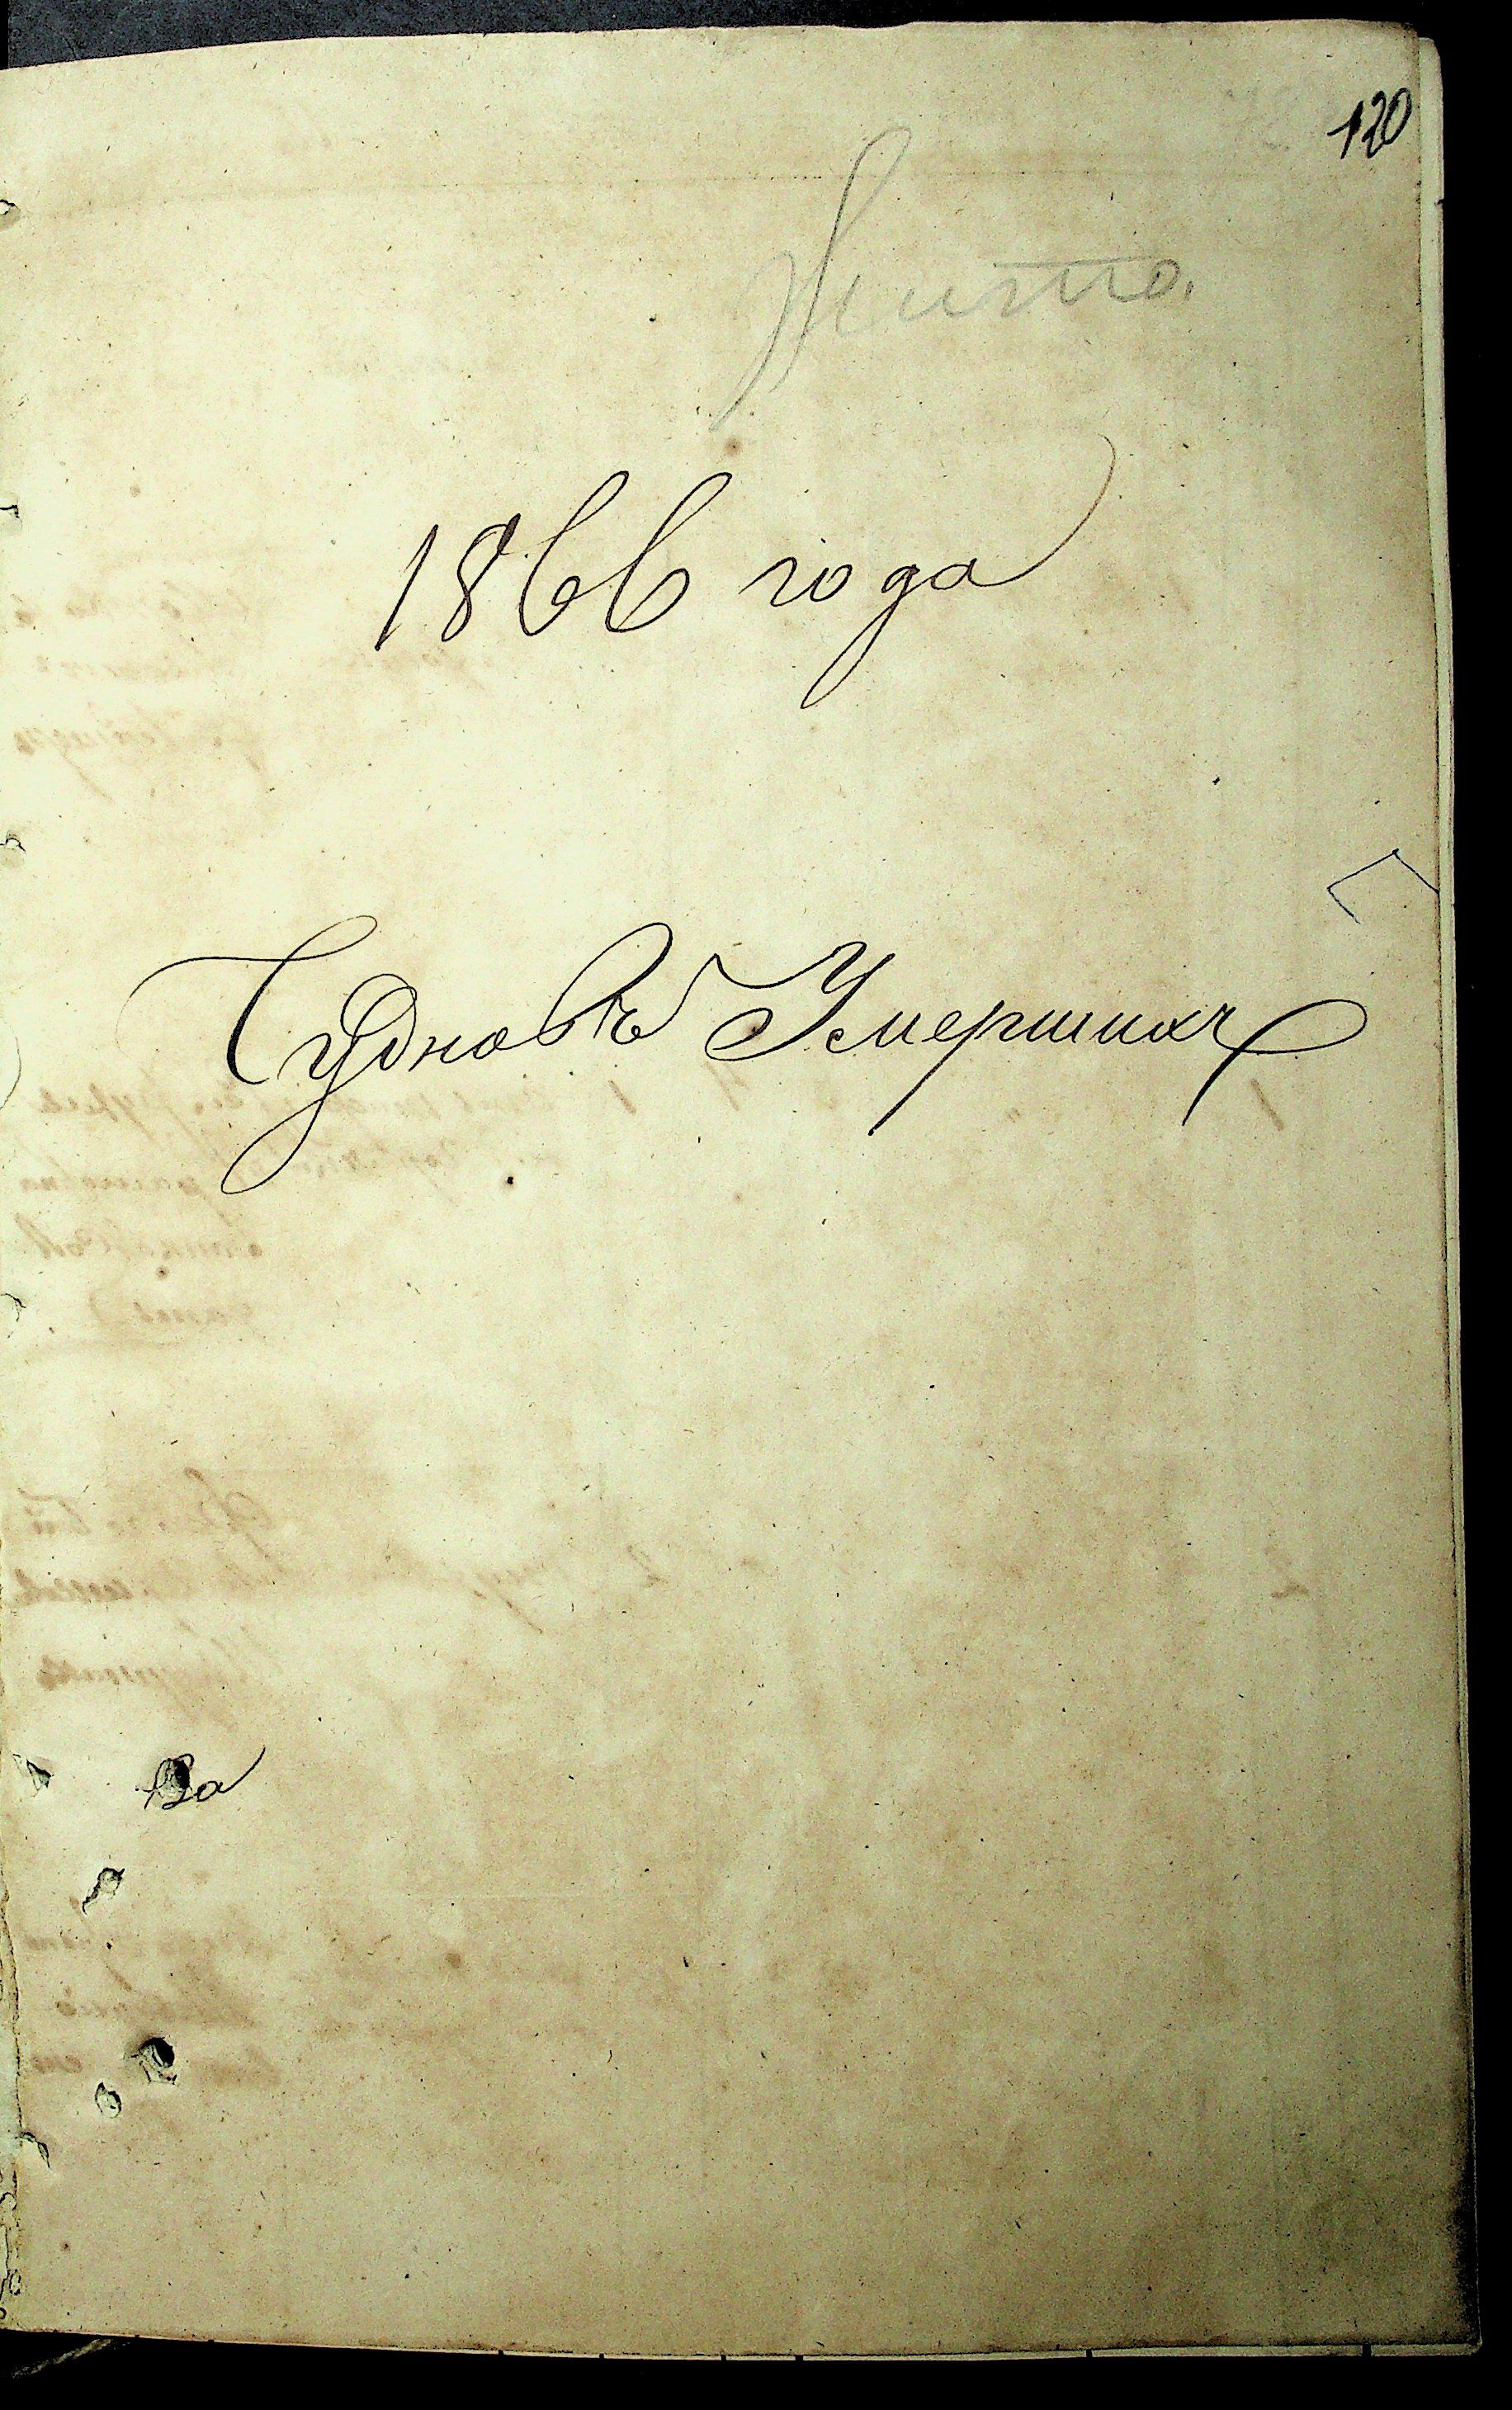 120
Жито.
1866 года
Чудновъ Умершихъ